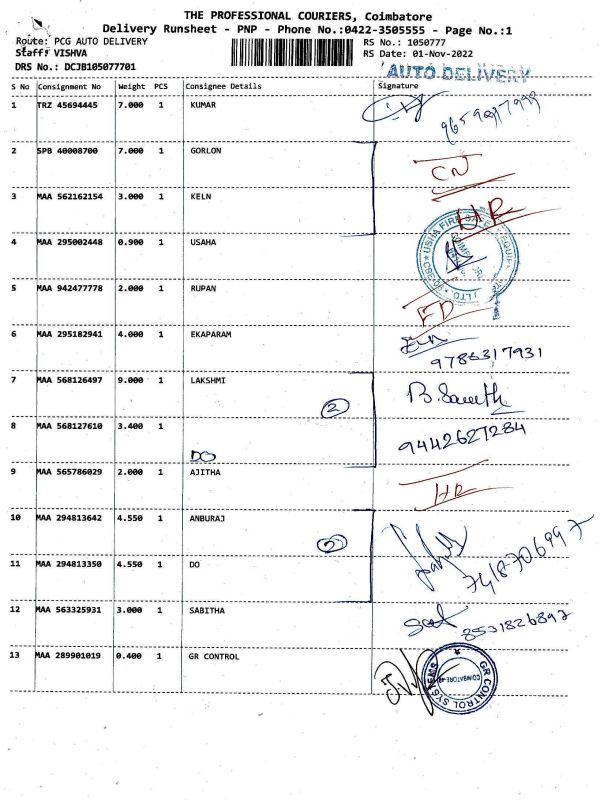 THE PROFESSIONAL COURIERS, Coimbatore
Delivery Runsheet - PNP - Phone No.:0422-3505555 - Page No.:1
Route: PCG AUTO DELIVERY RS No.: 1050777
Staff: VISHVA RS Date: 01-Nov-2022
DRS No.: DCJB105077701
AUTO DELIVERY
S No Consignment No Weight PCS Consignee Details Signature
1 TRZ 45694445 7.000 1 KUMAR
2 SPB 40008700 7.000 1 GORLON
CN
3 MAA 562162154 3.000 1 KELN
HR
4 MAA 295002448 0.900 1 USAHA
5 MAA 942477778 2.000 1 RUPAN
FD
6 MAA 295182941 4.000 1 EKAPARAM
9786317931
7 MAA 568126497 9.000 1 LAKSHMI
2
8 MAA 568127610 3.400 1
DO
9442627284
9 MAA 565786029 2.000 1 AJITHA
HR
10 MAA 294813642 4.550 1 ANBURAJ
2
7418706997
11 MAA 294813350 4.550 1 DO
12 MAA 563325931 3.000 1 SABITHA
8531826897
13 MAA 289901019 0.400 1 GR CONTROL
GR CONTROL SYSTEMS